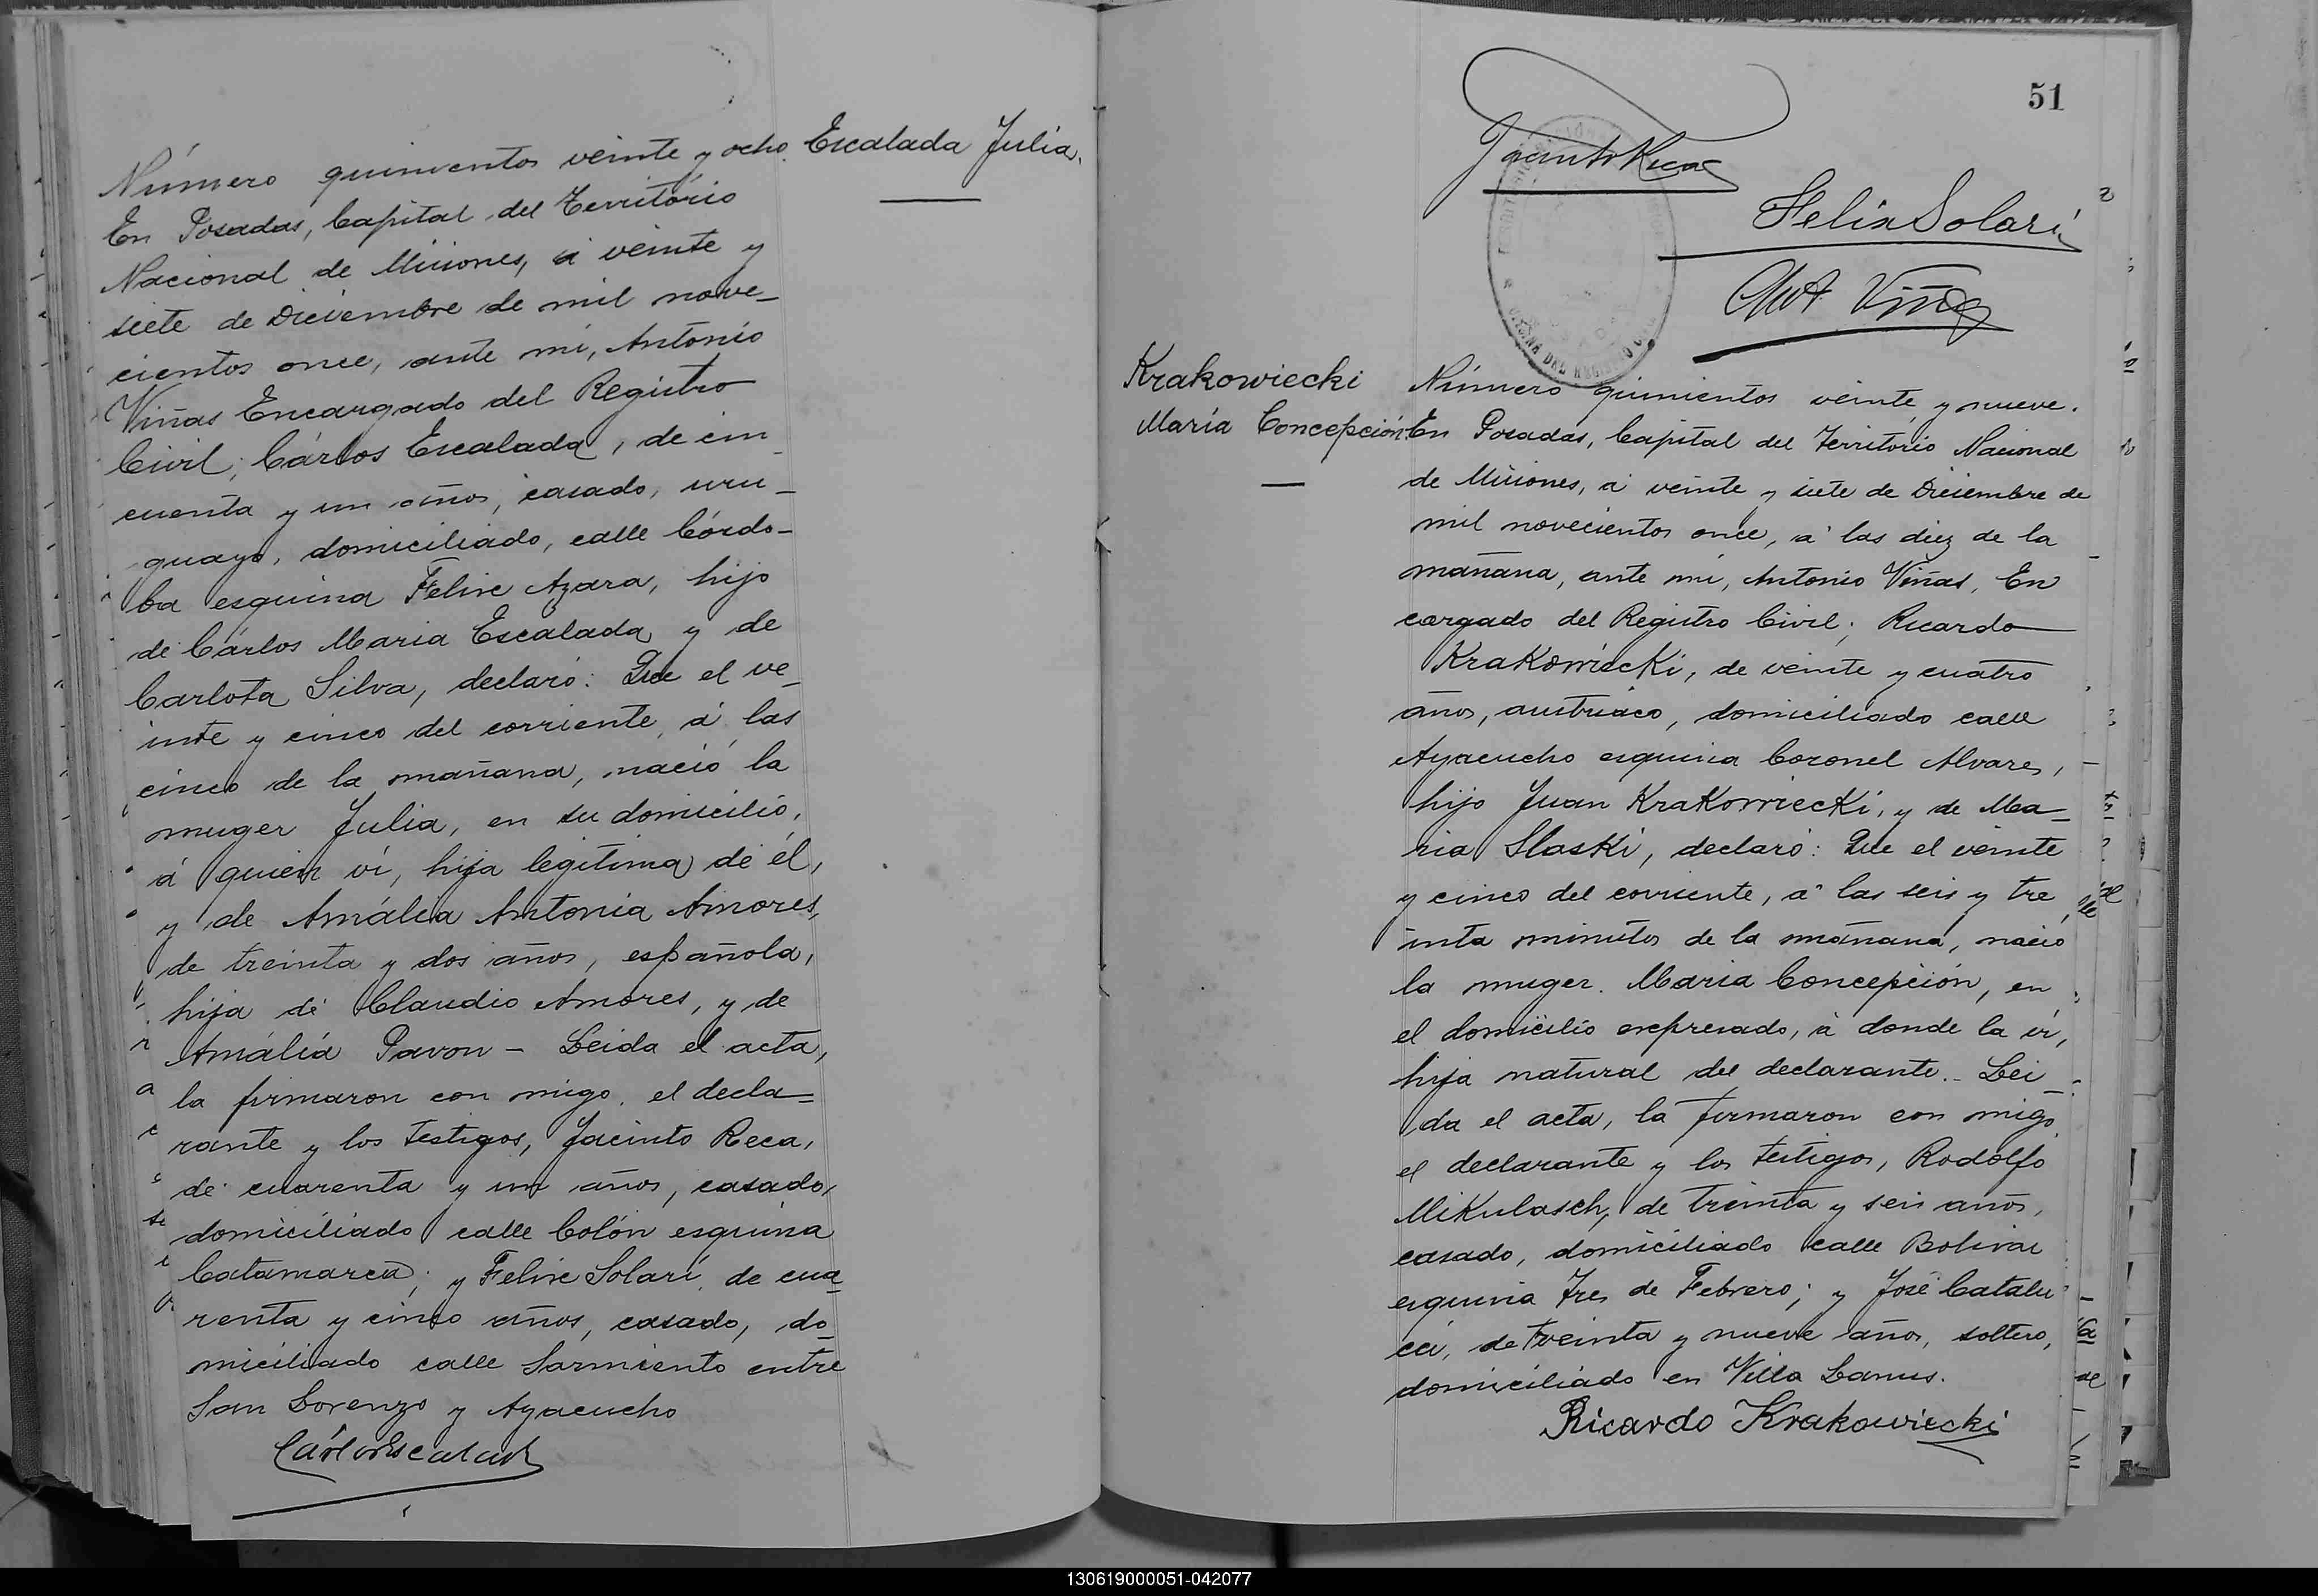 Número quinientos veinte y ocho. Escalada Julia.
En Posadas, Capital del Território
Nacional de Misiones, á veinte y
siete de Diciembre de mil nove-
cientos once, ante mi, Antonio
Viñas Encargado del Registro
Civil; Cárlos Escalada, de cin_
cuenta y un años, casado, uru_
guayo, domiciliado, calle Córdo-
ba esquina Felix Azara, hijo
de Cárlos Maria Escalada y de
Carlota Silva, declaró: Que el ve_
inte y cinco del corriente, á las
cinco de la mañana, nació la
muger Julia, en su domicilio,
á quien ví, hija legitima de él,
y de Amália Antonia Amores,
de treinta y dos años, española,
hija de Claudio Amores, y de
Amália Pavon - Leida el acta,
la firmaron con migo, el decla_
rante y los testigos, Jacinto Reca,
de cuarenta y un años, casado,
domiciliado calle Colón esquina
Catamarca; y Felix Solari, de cua_
renta y cinco años, casado, do_
miciliado calle Sarmiento entre
San Lorenzo y Ayacucho
Cárlos Escalada
51
Jacinto Reca
Felix Solari
Ant Viñas
OFICINA DEL REGISTRO CIVIL
Krakowiecki
María Concepción
Número quinientos veinte y nueve.
En Posadas, Capital del Território Nacional
de Misiones, á veinte y siete de Diciembre de
mil novecientos once, á las diez de la
mañana, ante mi, Antonio Viñas, En
cargado del Registro Civil; Ricardo
Krakowiecki, de veinte y cuatro
años, austriaco, domiciliado calle
Ayacucho esquina Coronel Alvares,
hijo Juan Krakowiecki, y de Ma_
ria Slaski, declaró: Que el veinte
y cinco del corriente, á las seis y tre_
inta minutos de la mañana, nació
la muger. Maria Concepción, en
el domicilio expresado, á donde la ví,
hija natural del declarante.- Lei_
da el acta, la firmaron con migo
el declarante y los testigos, Rodolfo
Mikulasch, de treinta y seis años,
casado, domiciliado calle Bolivar
esquina Tres de Febrero; y José Catalu
cci, de treinta y nueve años, soltero,
domiciliado en Villa Lanus.
Ricardo Krakowiecki
130619000051-042077